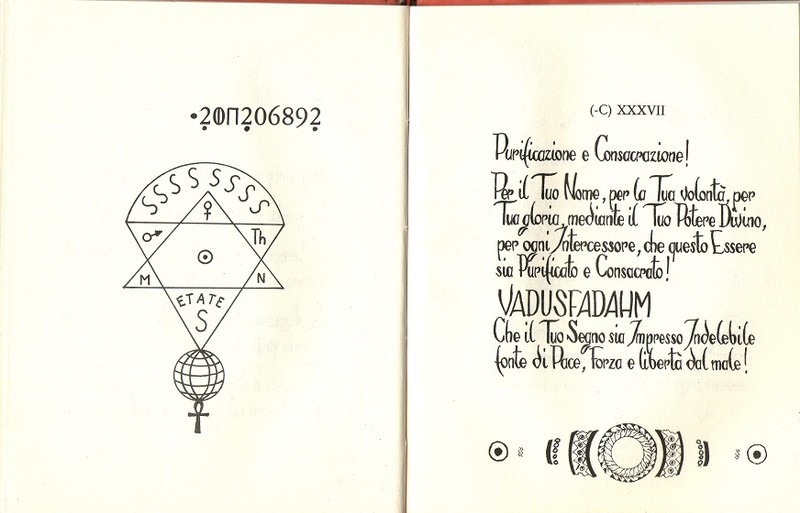 •2ΦΠ206892
SSSS SSSS
Th
M
N
ETATE
S
(-C) XXXVII
Purificazione e Consacrazione!
Per il Tuo Nome, per la Tua volontà, per
Tua gloria, mediante il Tuo Potere Divino,
per ogni Intercessore, che questo Essere
sia Purificato e Consacrato!
VADUSFADAHM
Che il Tuo Segno sia Impresso Indelebile
fonte di Pace, Forza e libertà dal male!